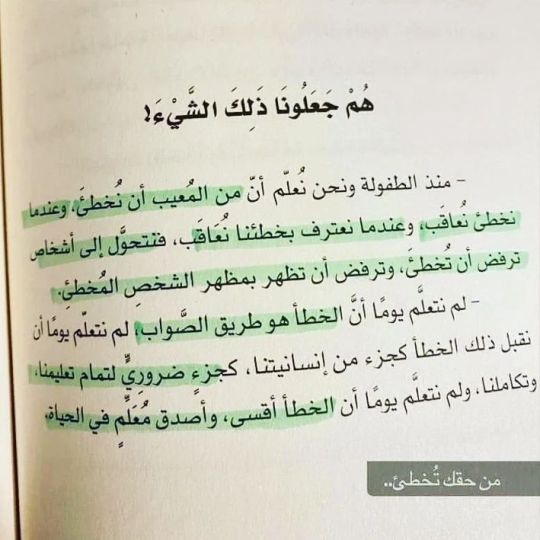 هُمْ جَعَلُونَا ذَلِكَ الشَّيْءَ!
- منذ الطفولة ونحن نُعلّم أنّ من المُعيب أن نُخطئَ، وعندما
نخطئ نُعاقَب، وعندما نعترف بخطئنا نُعاقَب، فنتحوَّل إلى أشخاص
ترفض أن تُخطئَ، وترفض أن تظهر بمظهر الشخصِ المُخطئِ.
- لم نتعلَّم يومًا أنَّ الخطأ هو طريق الصَّواب، لم نتعلّم يومًا أن
نقبل ذلك الخطأ كجزء من إنسانيتنا، كجزءٍ ضروريٍّ لتمام تعليمنا،
وتكاملنا، ولم نتعلَّم يومًا أن الخطأ أقسى، وأصدق مُعَلِّمٍ في الحياة،
من حقك تُخطئ..